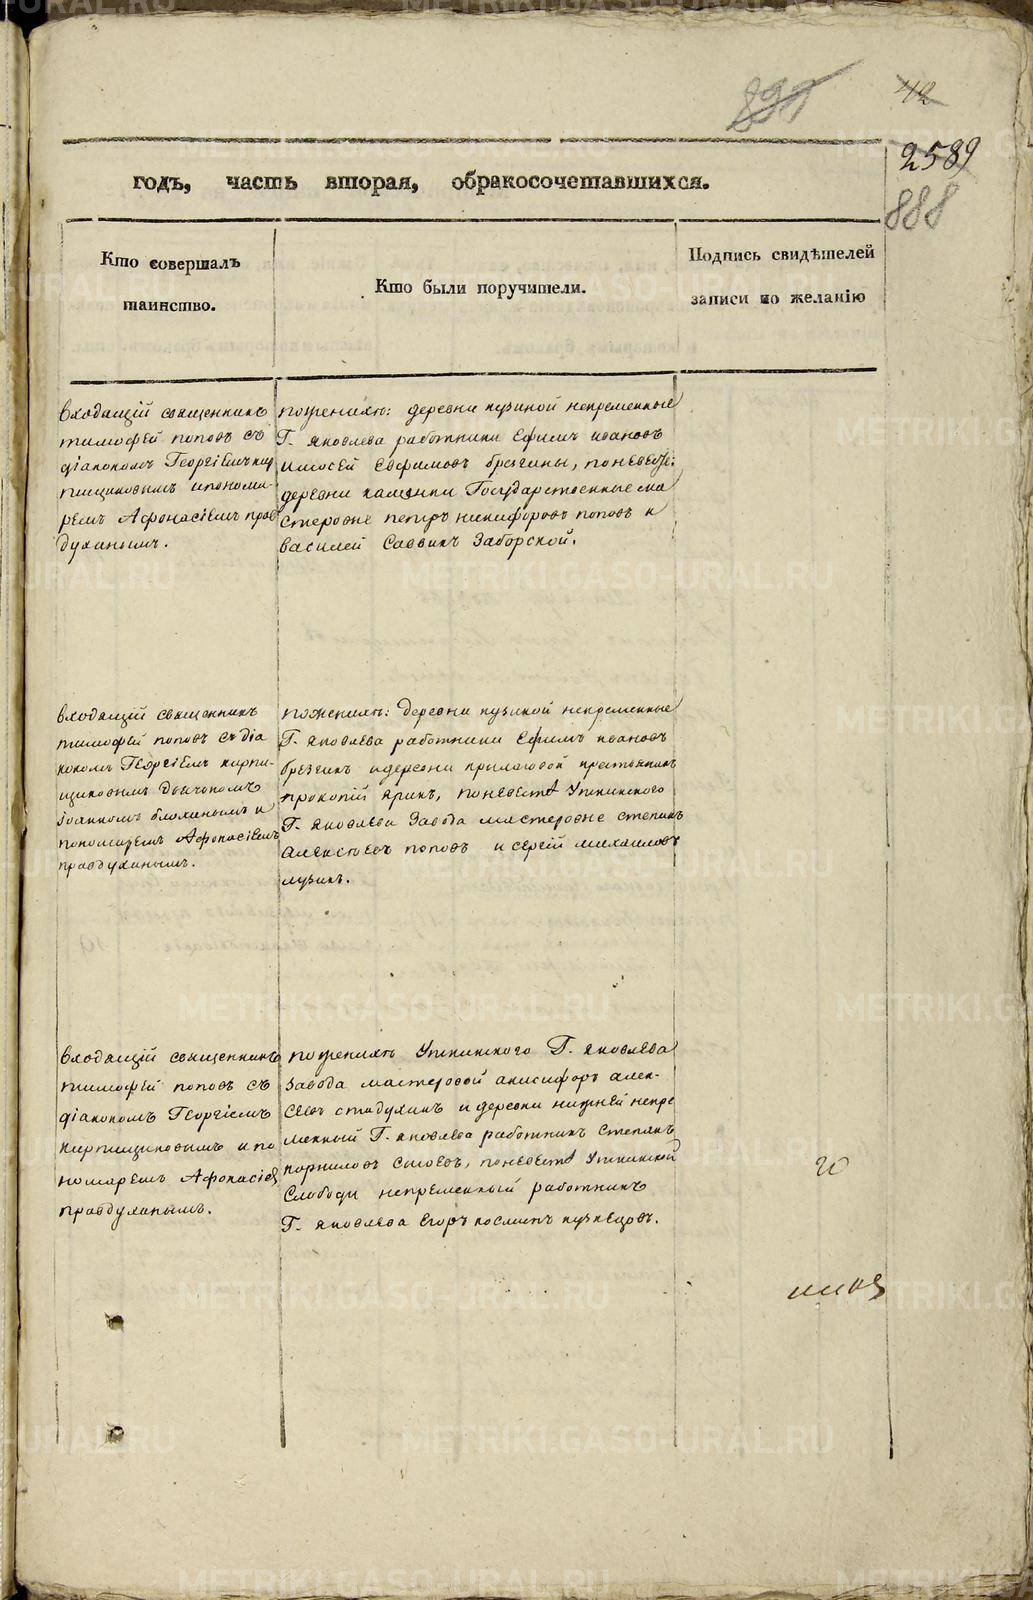 42
2589
888
годъ, часть вторая, обракосочетавшихся.
Кто совершалъ
таинство.
Кто были поручители.
Подпись свидѣтелей
записи по желанію
входящій священникъ
тимофей поповъ съ
діакономъ Георгіемъ кир
пищиковымъ ипонома-
ремъ Афонасіемъ прав
духинымъ.
поженихѣ: деревни кузиной непременные
Г. яковлева работники Ефимъ ивановъ
Евфимовъ брезгины, поневесте:
деревни каменки Государственные ма
стеровые петръ никифоровъ поповъ и
василей Саввинъ Заборской.
входящій священникъ
тимофей поповъ съ діа
кономъ Георгіемъ кирпи-
щиковымъ дьячкомъ
іоанномъ и
пономаремъ Афонасіемъ
правдухинымъ.
поженихѣ: деревни кузиной непременные
Г. яковлева работники Ефимъ ивановъ
брезгинъ идеревни крестьянинъ
прокопій яринъ, поневестѣ Уткинского
Г. яковлева Завода мастеровые степанъ
Алексѣевъ поповъ и сергѣй михаиловъ
лузинъ.
входящій священникъ
тимофей поповъ съ
діакономъ Георгіемъ
кирпищиковымъ ипо
номаремъ Афонасіемъ
правдухинымъ.
поженихѣ Уткинского Г. яковлева
завода мастеровой анисифоръ алек-
сѣевъ стадухинъ и деревни нижней непре
менный Г. яковлева работникъ степанъ
корниловъ поневестѣ Уткинской
Слободы непременный работникъ
Г. яковлева Егоръ козминъ кузнецовъ.